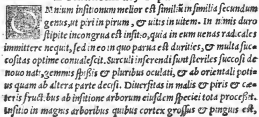 Omnium insitionum melior est similiũ in similia secundum
genus, ut piri in pirum, & uitis in uitem. In nimis duro
stipite incongrua est insitio, quia in eum uenas radicales
immittere nequit, sed in eo in quo parua est durities, & multa suc-
cositas optime conualescit. Surculi inserendi sunt steriles succosi de
nouo nati, gemmis spissis & pluribus oculati, & ab orientali poti-
us quam ab altera parte decisi. Diuersitas in malis & piris & cæ-
teris fruct. bus ab insitione arborum eiusdem speciei tota processit.
Insitio in magnis arboribus quibus cortex grossus & pinguis est,